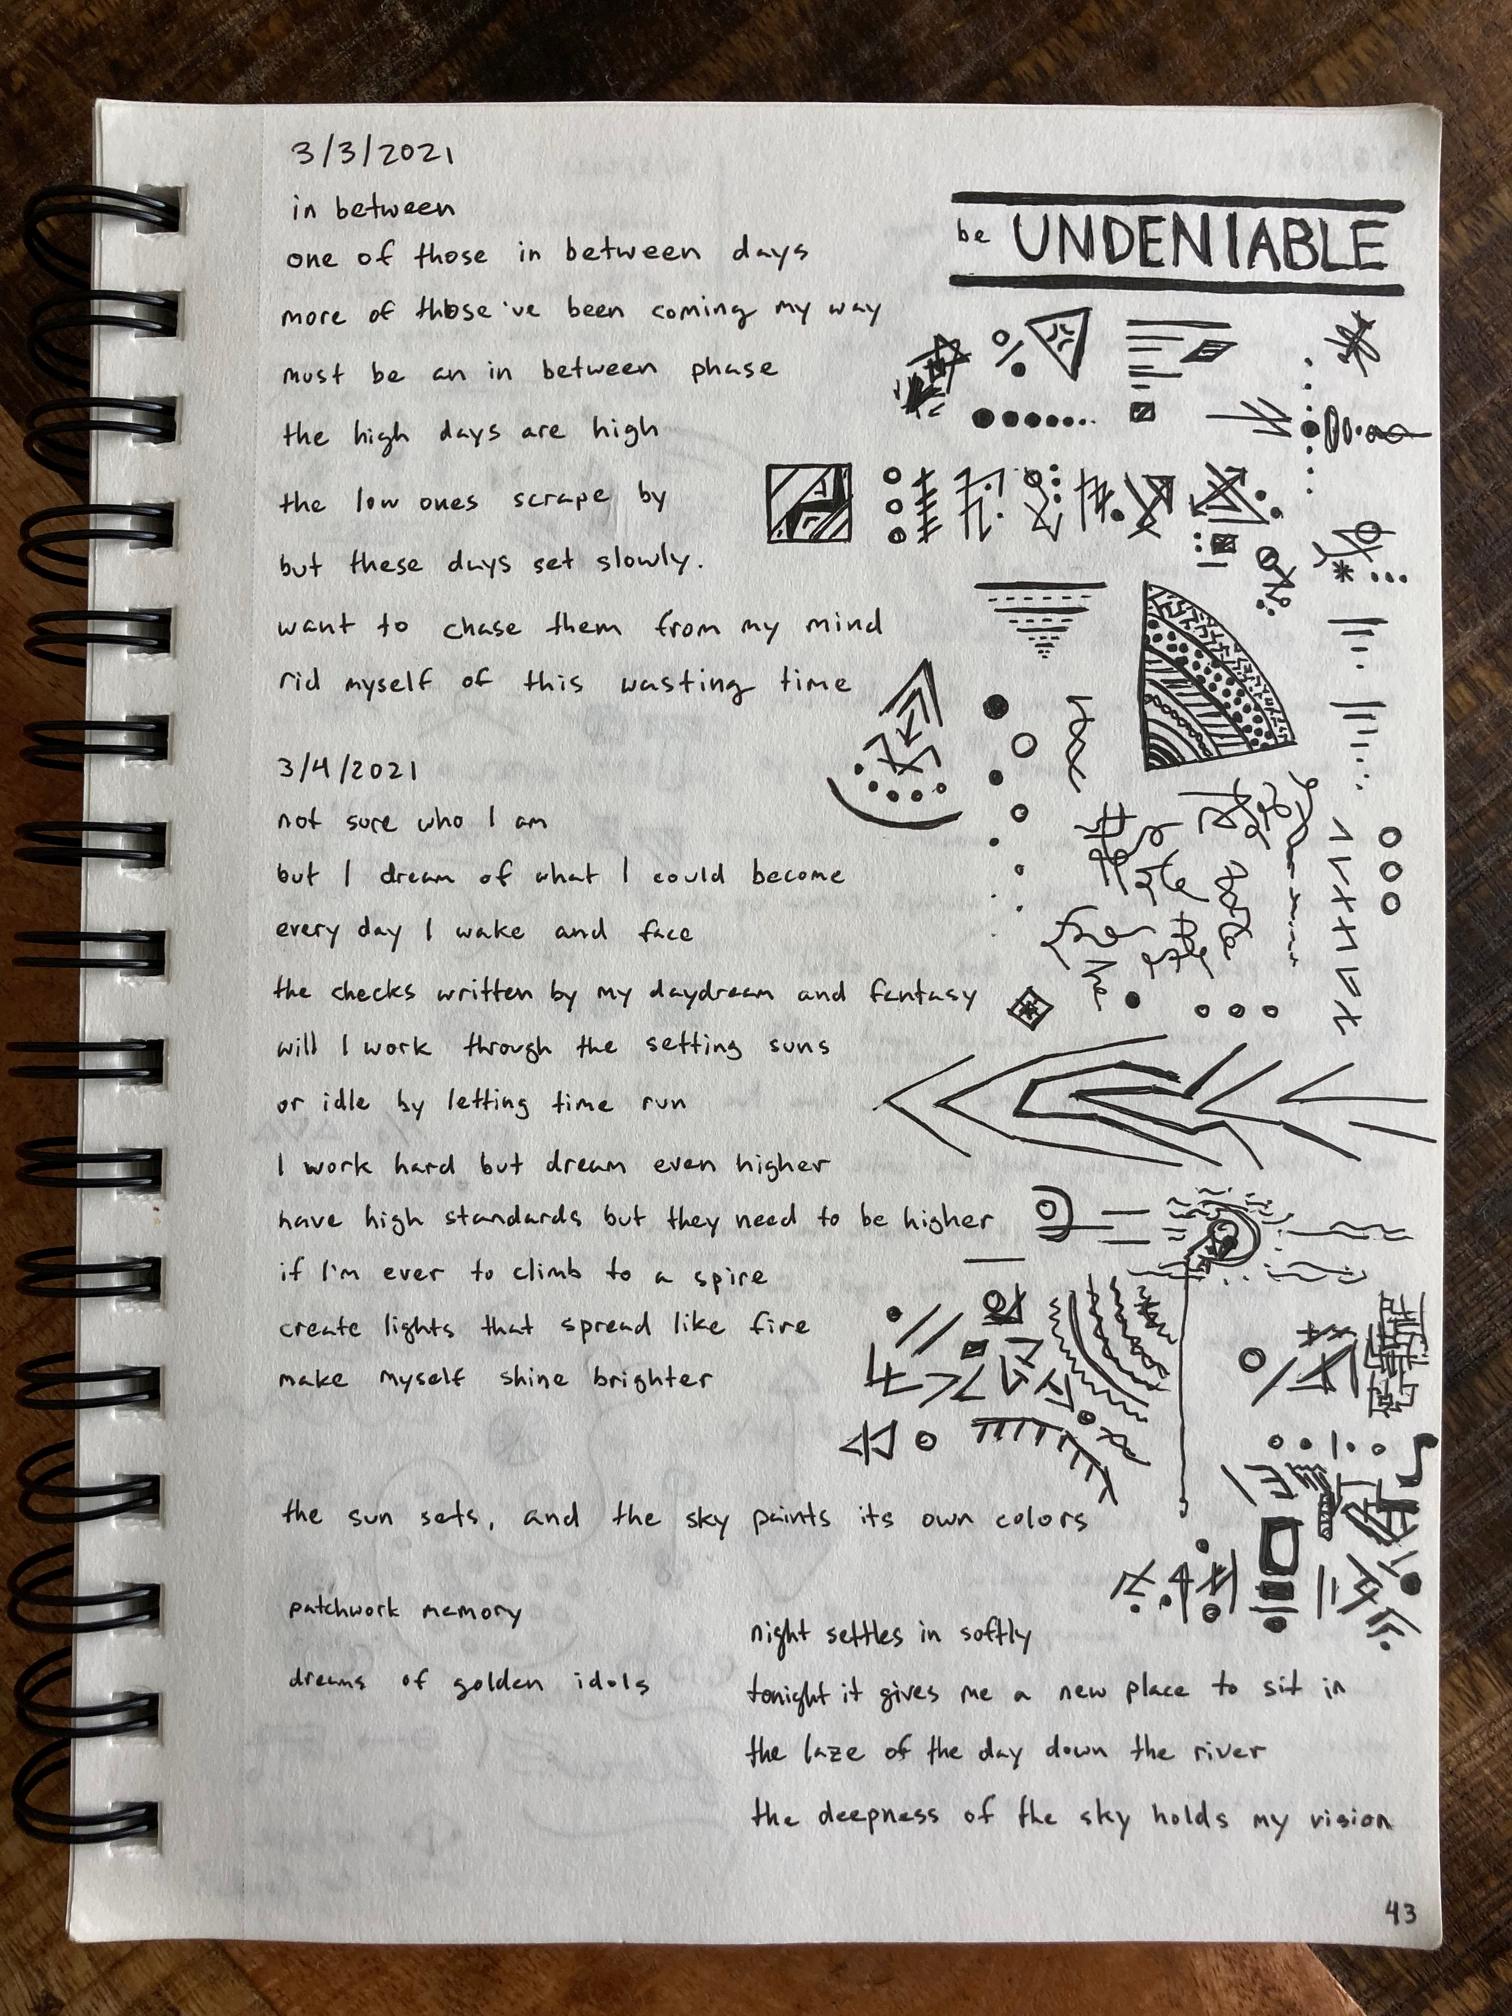 3/3/2021
in between
be UNDENIABLE
one of those in between days
more of those 've been coming my way
must be an in between phase
the high days are high
the low ones scrape by
but these days set slowly.
want to chase them from my mind
rid myself of this wasting time
3/4/2021
not sure who I am
but I dream of what I could become
every day I wake and face
the checks written by my daydream and fantasy
will I work through the setting suns
or idle by letting time run
I work hard but dream even higher
have high standards but they need to be higher
if I'm ever to climb to a spire
create lights that spread like fire
make myself shine brighter
the sun sets, and the sky paints its own colors
patchwork memory
dreams of golden idols
night settles in softly
tonight it gives me a new place to sit in
the laze of the day down the river
the deepness of the sky holds my vision
43